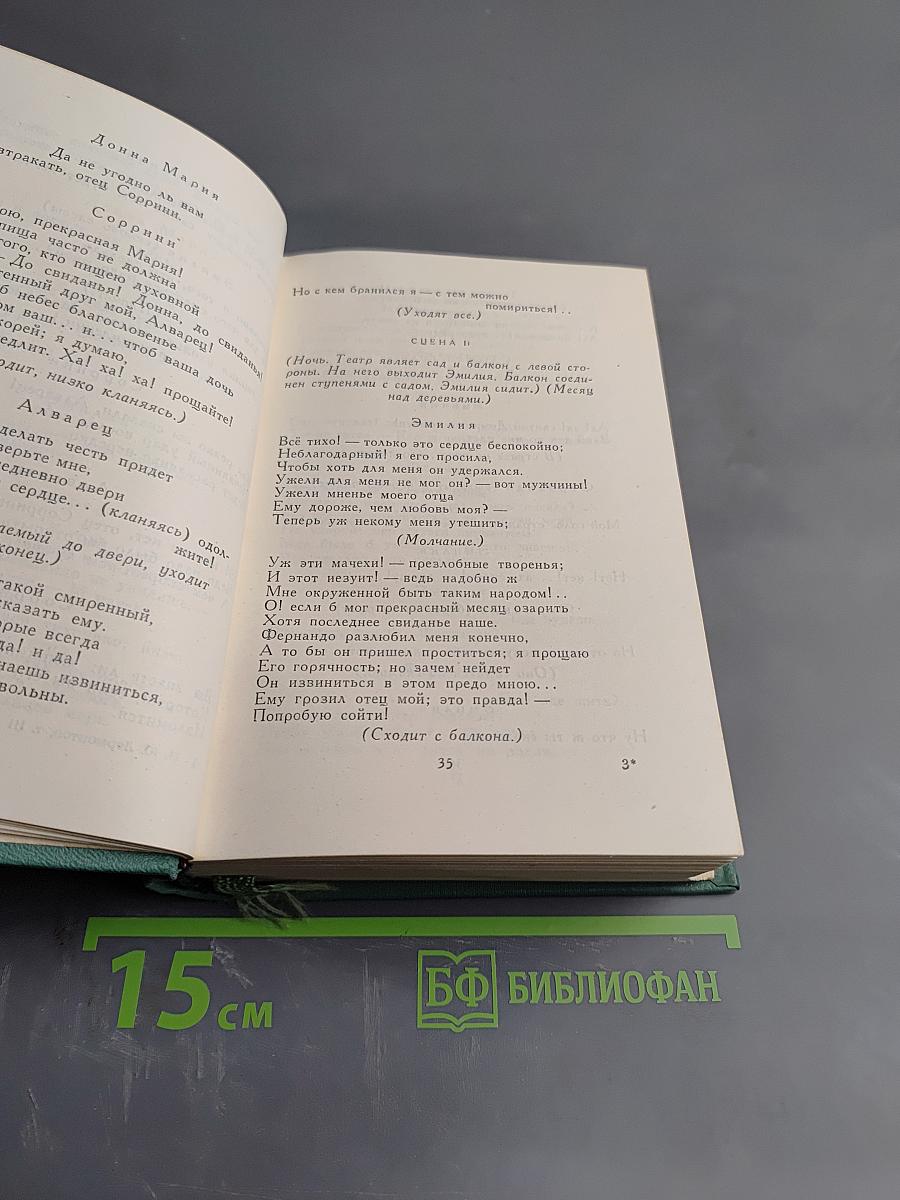 Донна Мария
Да не угодно ль вам
втракать, отец Соррини.
Соррини
ою, прекрасная Мария!
пища часто не должна
того, кто пищею духовной
— До свиданья! Донна, до свиданья!
тенный друг мой, Алварец!
б небес благословенье
ом ваш... и... чтоб ваша дочь
корей; я думаю,
едлит. Ха! ха! ха! прощайте!
одит, низко кланяясь.)
Алварец
делать честь придет
верьте мне,
едневно двери
сердце... (кланяясь) одол-
жите!
лемый до двери, уходит
конец.)
такой смиренный,
сказать ему.
орые всегда
да! и да!
наешь извиниться,
вольны.
Но с кем бранился я — с тем можно
помириться!..
(Уходят все.)
СЦЕНА II
(Ночь. Театр являет сад и балкон с левой сто-
роны. На него выходит Эмилия. Балкон соеди-
нен ступенями с садом. Эмилия сидит.) (Месяц
над деревьями.)
Эмилия
Всё тихо! — только это сердце беспокойно;
Неблагодарный! я его просила,
Чтобы хоть для меня он удержался.
Ужели для меня не мог он? — вот мужчины!
Ужели мненье моего отца
Ему дороже, чем любовь моя? —
Теперь уж некому меня утешить;
(Молчание.)
Уж эти мачехи! — презлобные творенья;
И этот иезуит! — ведь надобно ж
Мне окруженной быть таким народом!..
О! если б мог прекрасный месяц озарить
Хотя последнее свиданье наше.
Фернандо разлюбил меня конечно,
А то бы он пришел проститься; я прощаю
Его горячность; но зачем нейдет
Он извиниться в этом предо мною...
Ему грозил отец мой; это правда! —
Попробую сойти!
(Сходит с балкона.)
35
3*
15 см
БФ БИБЛИОФАН